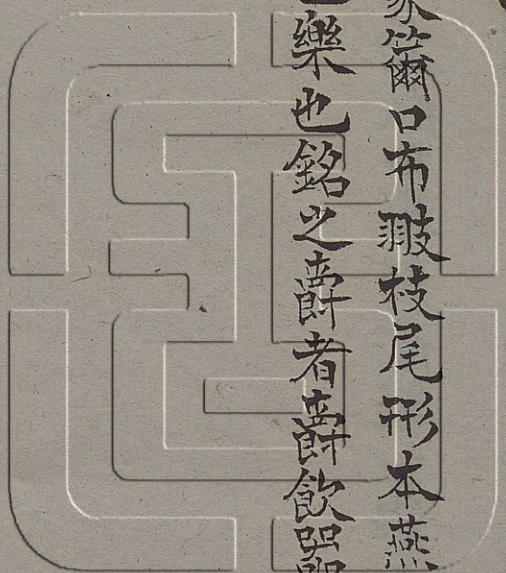 籋口布翄枝尾形本燕
樂也銘之爵者爵飲器